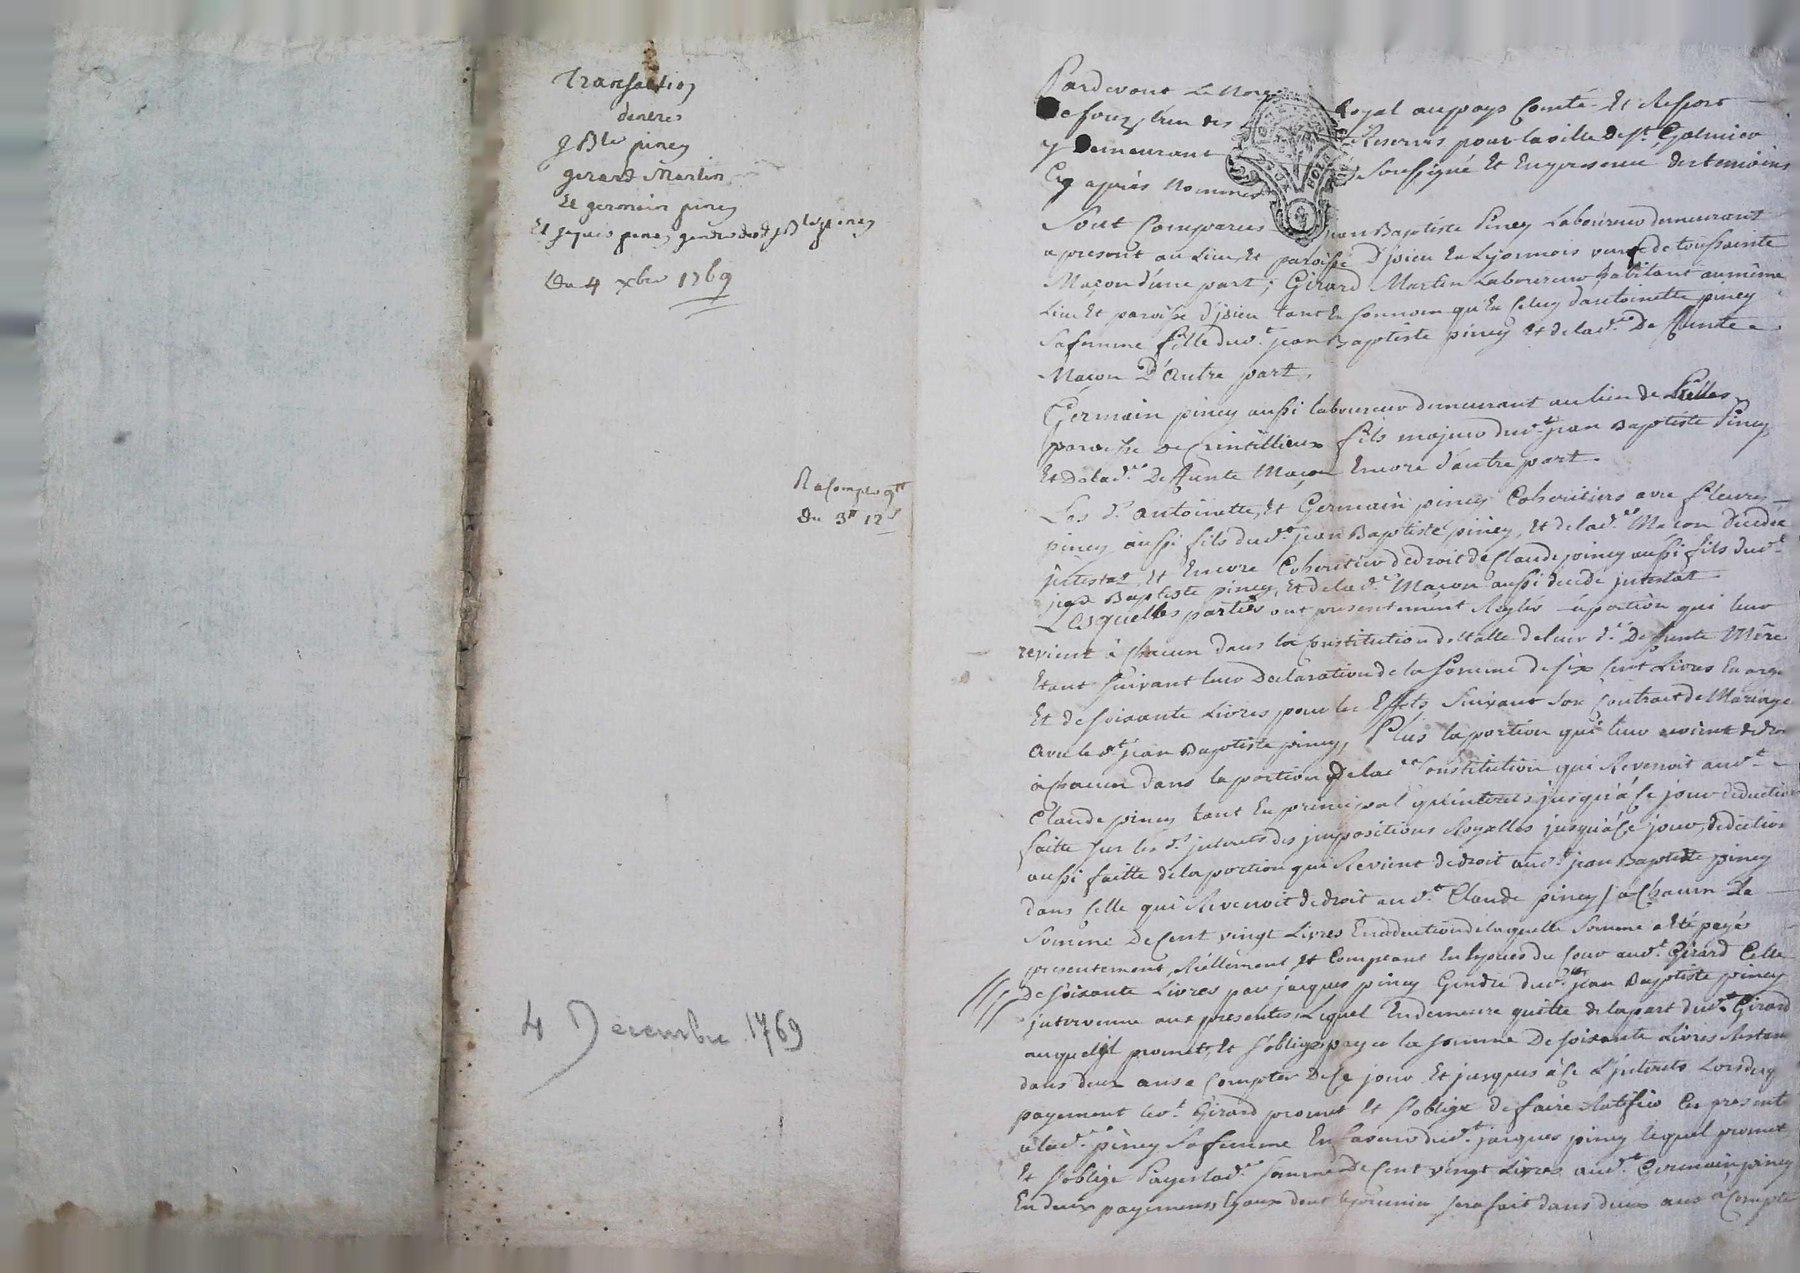 Transaction
dentre
J Bte piney
gerard Martin
Et germain piney
Et jaques piney gendre dud. J Bte piney
Du 4 xbre 1769
Du 3# 12s
4 Decembre 1769
Pardevant Le No Royal au pays Comté Et Ressort
De forez, l'un des Reservés pour la ville de St. Galmier
y Demeurant Soussigné Et En presence des temoins
Cy après Nommés
Sont Comparus jean Baptiste Piney Laboureur demeurant
a present au Lieu Et paroisse d'joieu En Lyonnois veuf de toussainte
Maçon d'une part; Girard Martin Laboureur habitant au même
Lieu Et paroisse d'joieu tant En son nom qu'En Celuy d'antoinette piney
Sa femme fille dud.t jean Baptiste piney et de lad.e Defunte
Maçon D'autre part,
Germain piney aussi laboureur demeurant au lieu de
paroisse de fils majeur dud.t jean Baptiste Piney
Et de lad.e Defunte Maçon Encore d'autre part.
Les d. antoinette, Et Germain piney Coheritiers avec fleury
piney aussi fils dud.t jean Baptiste piney, Et de lad.e Maçon Decedé
jntestat, Et Encore Coheritier de droit de Claude piney aussi fils dud.t
jean Baptiste piney, Et de lad.e Maçon aussi decedé jntestat.
Lesquelles parties ont presentement Reglés portion qui leur
revient à Chacun dans la Constitution dottalle de leur d.e Defunte Mère
Etant suivant leur Declaration de la somme de six Cent Livres En arge
Et de soixante Livres pour les Effets suivant son Contract de Mariage
avec led.t jean Baptiste piney, Plus la portion qui leur revient de dro
à Chacun dans la portion de lad.e Constitution qui Revenoit aud.t
Claude piney tant En principal qu'interets jusqu'à Ce jour deduction
faitte sur les d. jnterets des jmpositions Royalles jusqu'à Ce jour, deduction
aussi faitte de la portion qui Revient de droit aud.t jean Baptiste piney
dans Celle qui Revenoit de droit aud.t Claude piney / à Chacun La
Somme de Cent vingt Livres En deduction de laquelle somme a Eté payé
presentement Réellement Et Comptant En Especes du Cour aud.t Girard Celle
de soixante Livres par jacques piney Gendre dud.t jean Baptiste piney
jntervenu aux presentes, Lequel En demeure quitte de la part dud.t Girard
auquel jl promet, Et s'oblige payer la somme De soixante Livres Restan
dans deux ans a Compter de Ce jour Et jusques à Ce L'jnterets Lors duq
payement led.t Girard promet Et s'oblige de faire Ratifier Ces presente
à lad.e piney Sa femme En faveur dud.t jacques piney lequel promet
Et s'oblige Payer lad.e somme de Cent vingt Livres aud.t Germain piney
En deux payements Egaux dont le premier sera fait dans deux ans à Compte